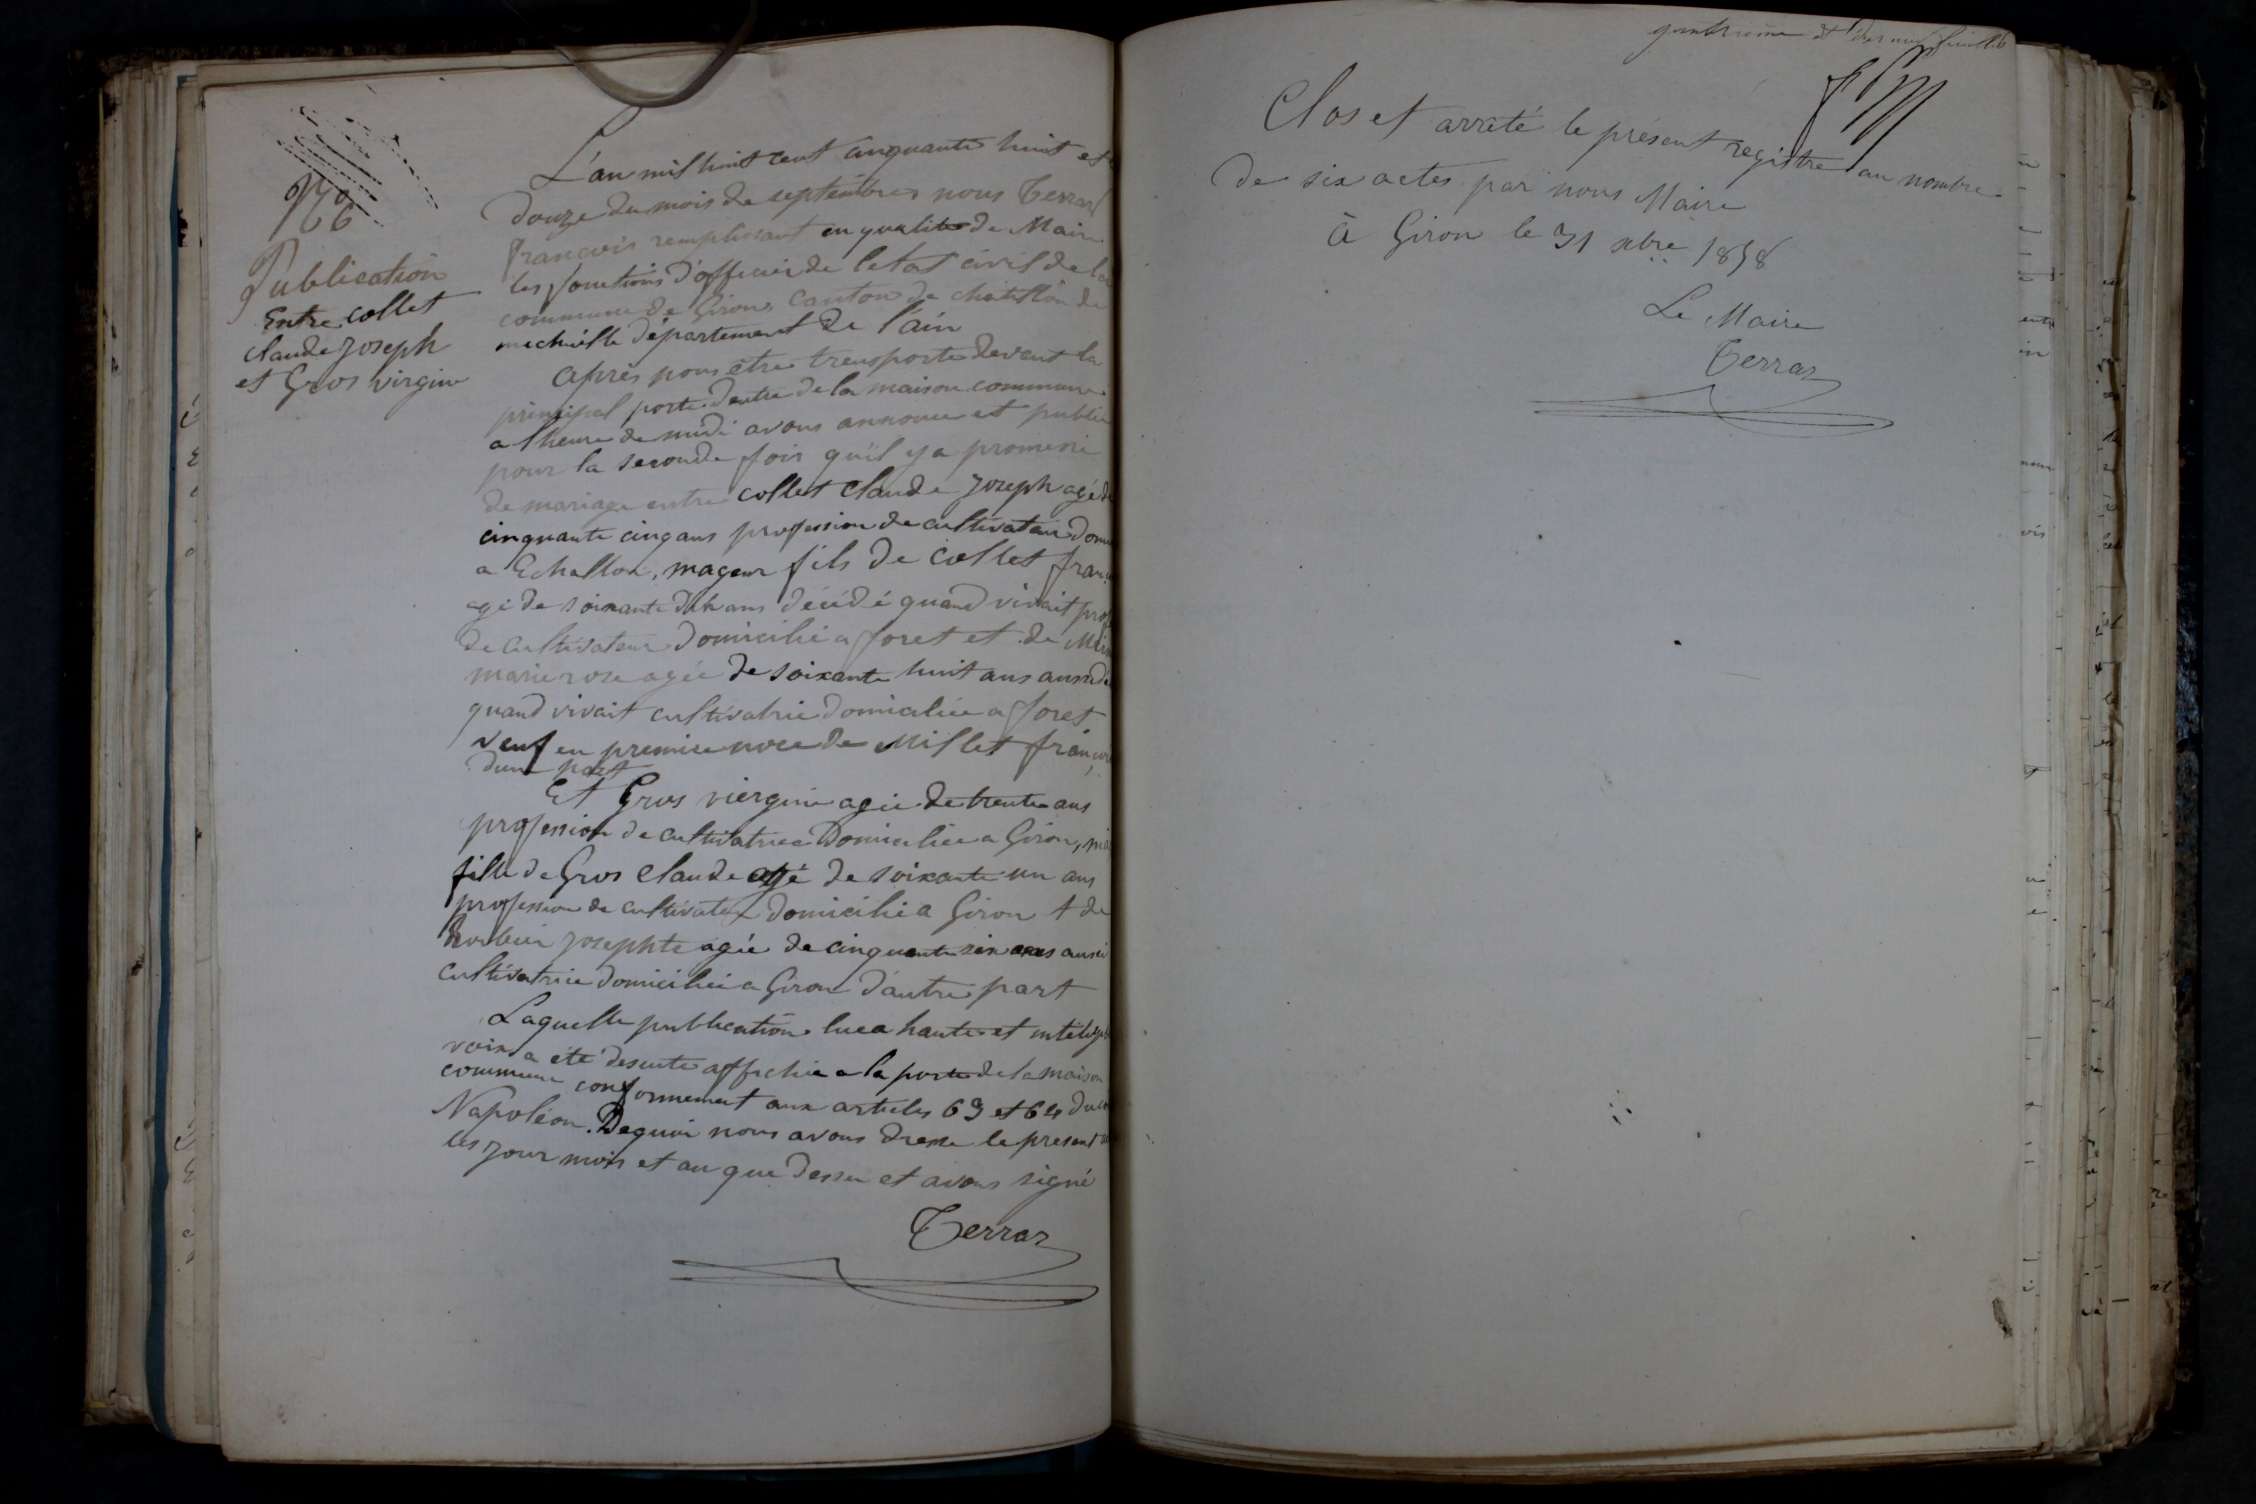 N° 6
Publication
Entre collet
claude Joseph
et Gros virginie
L'an mil huit cent cinquante huit et
Douze du mois de septembre nous Terraz
francois remplissant en qualité de Maire
les fonctions d'officier de l'etat civil de la
commune de Giron, canton de chatillon de
michaille département de l'ain
après nous être transporté devant la
principal porte d'entré de la maison commune
a l'heure de midi avons annoncé et publié
pour la seconde fois qu'il y a promesse
de mariage entre collet claude Joseph agé de
cinquante cinq ans profession de cultivateur domi
a Echallon, mageur fils de collet franç
agé de soixante ans décédé quand vivait prof
de cultivateur domicilié a foret et de
marie rose agée de soixante huit ans aussi dé
quand vivait cultivatrice domiciliée a foret
veuf en premiere noce de Millet françoi
d'une part
Et Gros viergine agée de trente ans
profession de cultivatrice Domiciliée a Giron, ma
fille de Gros Claude agé de soixante un ans
profession de cultivateur domicilié a Giron & de
Josephte agée de cinquante six ans aussi
cultivatrice domiciliée a Giron d'autre part
Laquelle publication lue a haute et inteligible
voix a été desuite affichée a la porte de la maison
commune conformement aux articles 63 et 64 du co
Napoléon. Dequoi nous avons dressé le présent
les jour mois et an que dessu et avons signé
Terraz
quatrieme et dernier feuillet
Clos et arrêté le présent registre au nombre
de six actes par nous Maire
à Giron le 31 xbre 1858
Le Maire
Terraz